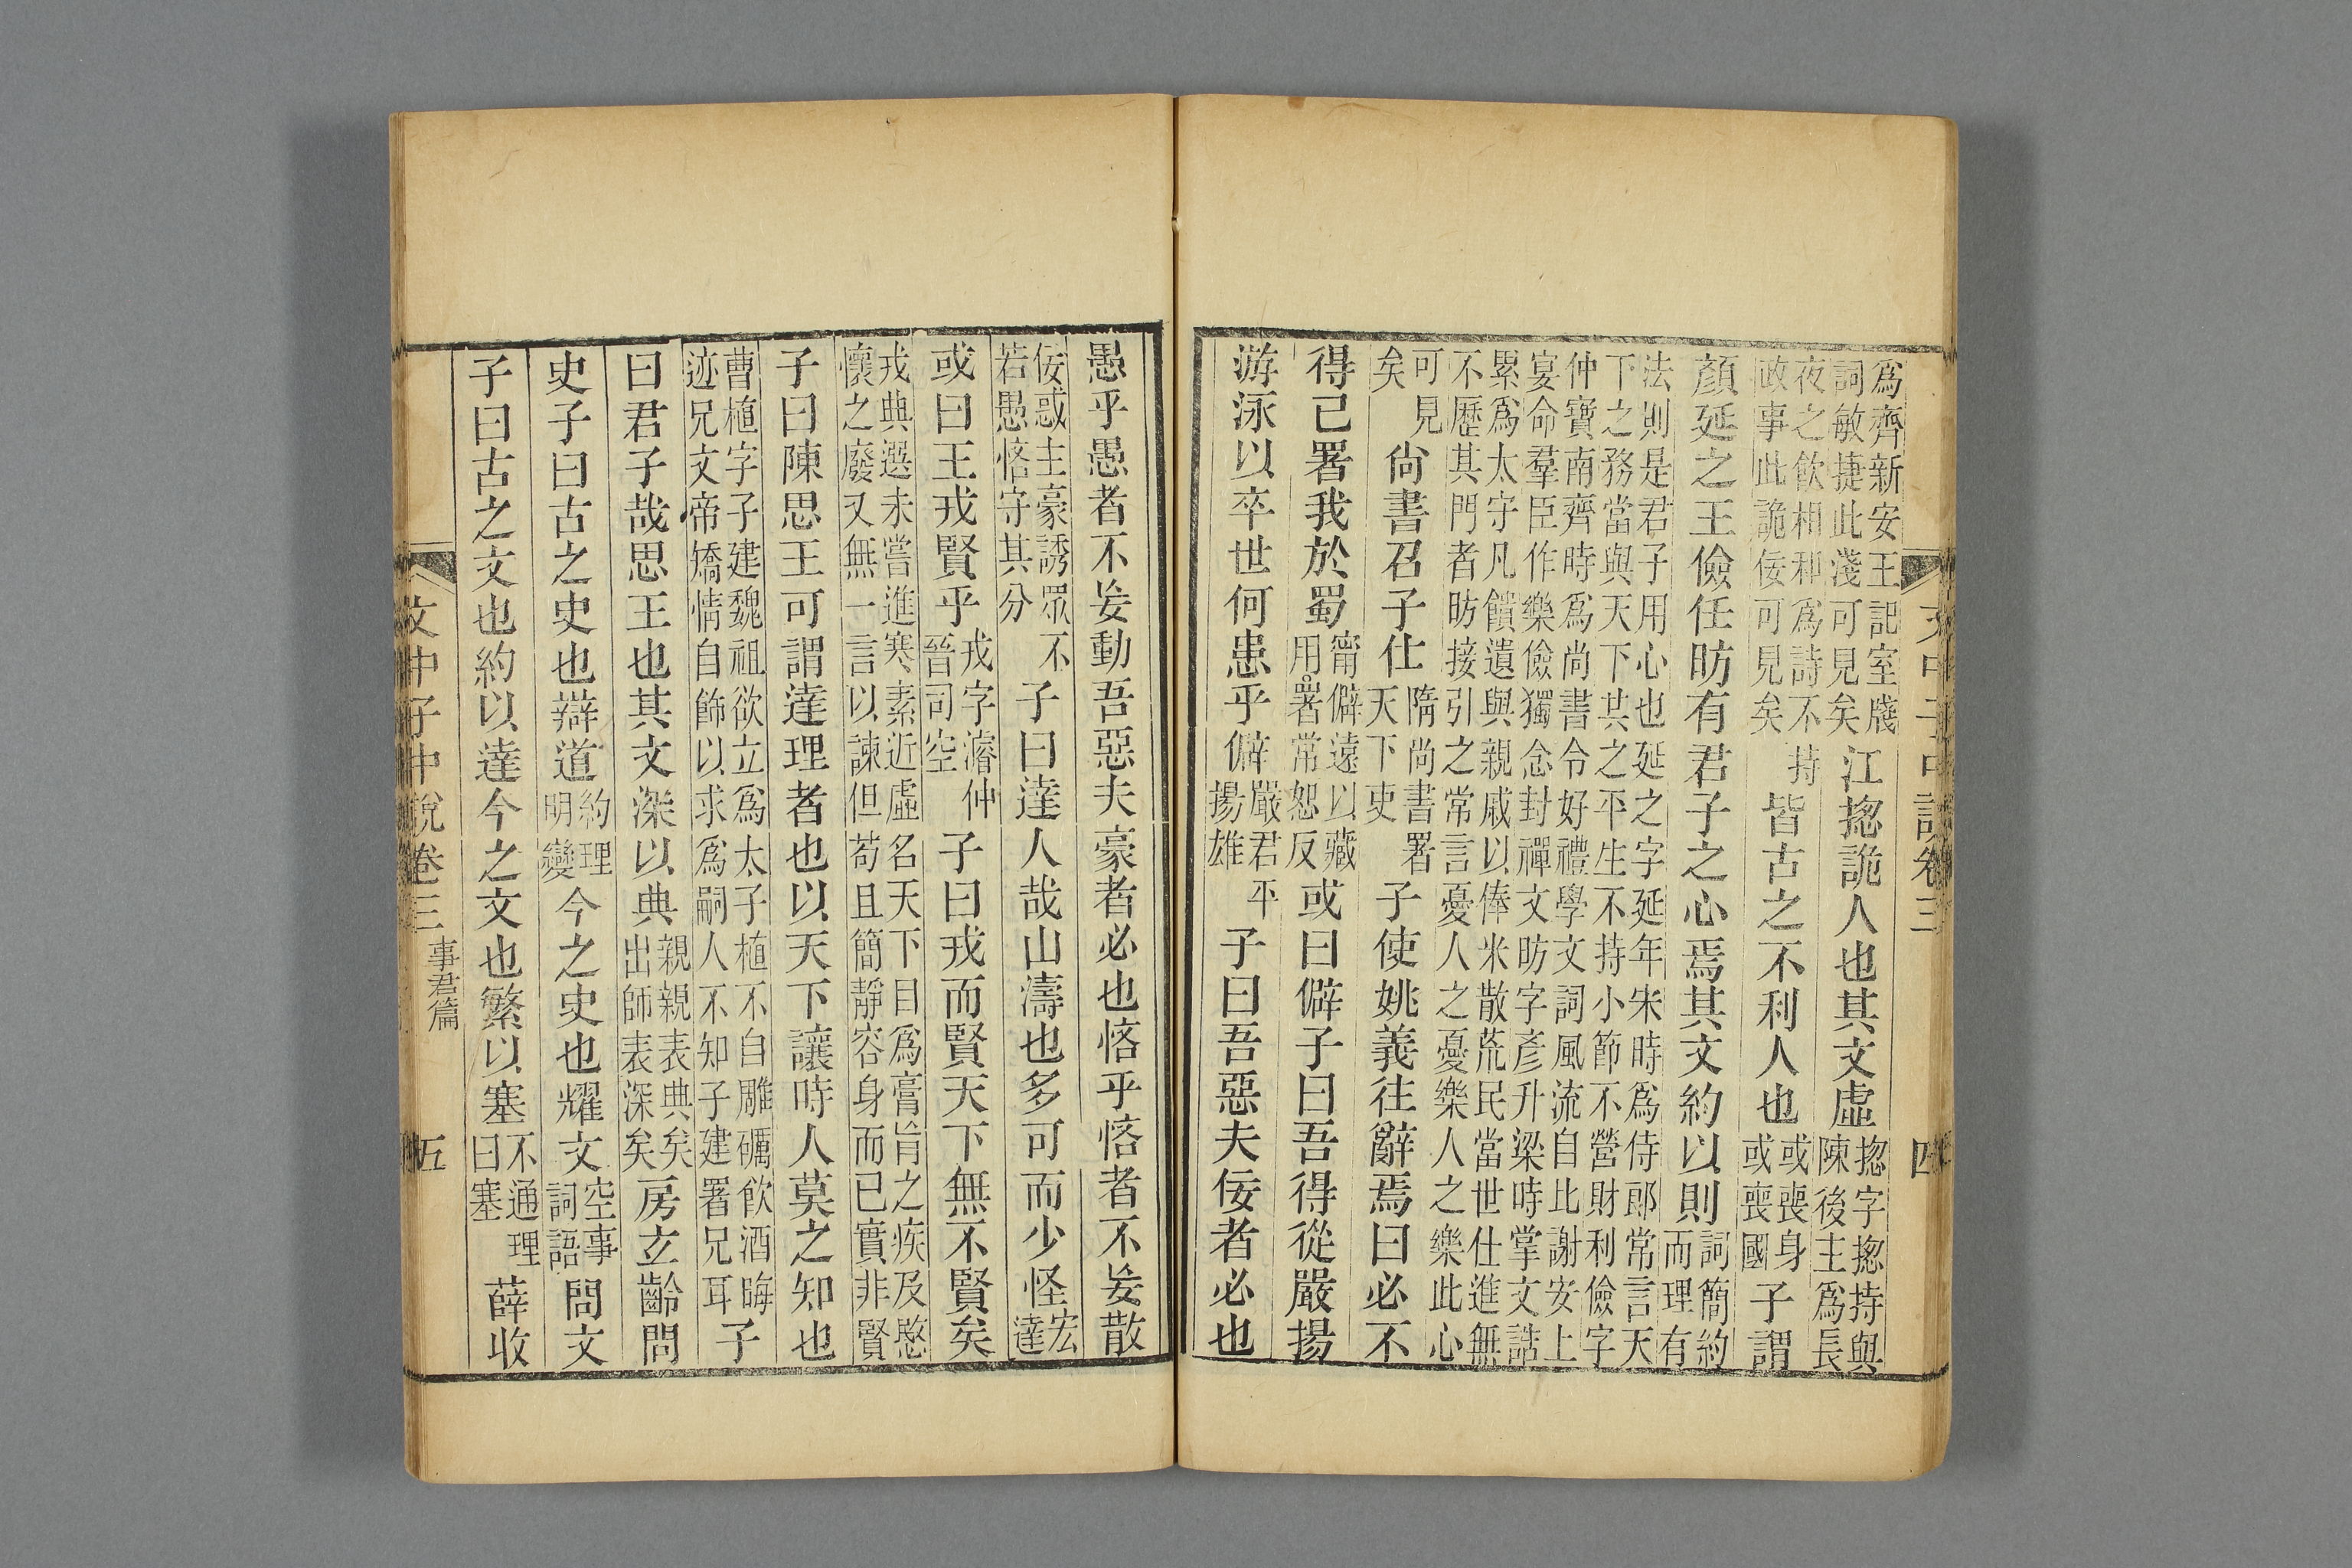 文中子中說卷三 四
爲齊新安王記室牋詞敏捷此淺可見矣江揔詭人也其文虛揔字揔持與陳後主爲長
夜之飲相和爲詩不持政事此詭佞可見矣皆古之不利人也或喪身或喪國子謂
顏延之王儉任昉有君子之心焉其文約以則詞簡約而理有
法則是君子用心也延之字延年宋時爲侍郎常言天
下之務當與天下共之平生不持小節不營財利儉字
仲寶南齊時爲尚書令好禮學文詞風流自比謝安上
宴命羣臣作樂儉獨念封禪文昉字彥升梁時掌文誥
累爲太守凡饋遺與親戚以俸米散荒民當世仕進無
不歷其門者昉接引之常言憂人之憂樂人之樂此心
可見矣尙書召子仕隋尚書署天下吏子使姚義往辭焉曰必不
得已署我於蜀甯僻遠以藏用署常恕反或曰僻子曰吾得從嚴揚
游泳以卒世何患乎僻嚴君平揚雄子曰吾惡夫佞者必也
愚乎愚者不妄動吾惡夫豪者必也悋乎悋者不妄散
佞惑主豪誘眾不若愚悋守其分子曰達人哉山濤也多可而少怪宏達
或曰王戎賢乎戎字濬仲晉司空子曰戎而賢天下無不賢矣
戎典選未嘗進寒素近虛名天下目爲膏肓之疾及愍
懷之廢又無一言以諫但苟且簡靜容身而已實非賢
子曰陳思王可謂達理者也以天下讓時人莫之知也
曹植字子建魏祖欲立爲太子植不自雕礪飲酒晦
迹兄文帝矯情自飾以求爲嗣人不知子建署兄耳子
曰君子哉思王也其文深以典親親表典矣出師表深矣房玄齡問
史子曰古之史也辯道約理明變今之史也耀文空事詞語問文
子曰古之文也約以達今之文也繁以塞不通理曰塞薛收
文中子中說卷三 事君篇 五